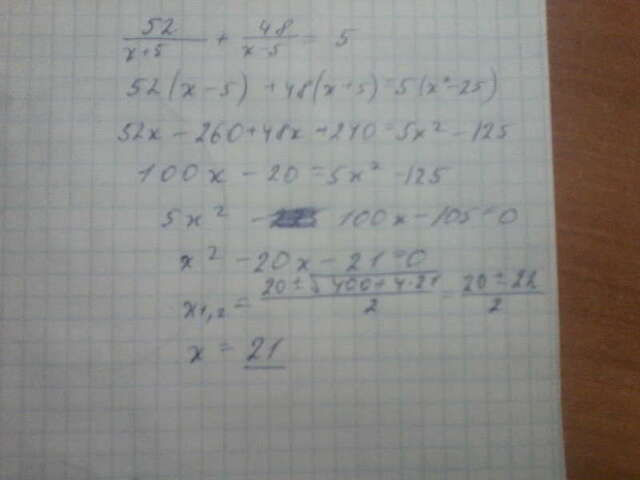 52/(x+5) + 48/(x-5) = 5
52(x-5) + 48(x+5) = 5(x²-25)
52x - 260 + 48x + 240 = 5x² - 125
100x - 20 = 5x² - 125
5x² - 100x - 105 = 0
x² - 20x - 21 = 0
x₁,₂ = (20 ± √(400 + 4·21))/2 = (20 ± 22)/2
x = 21